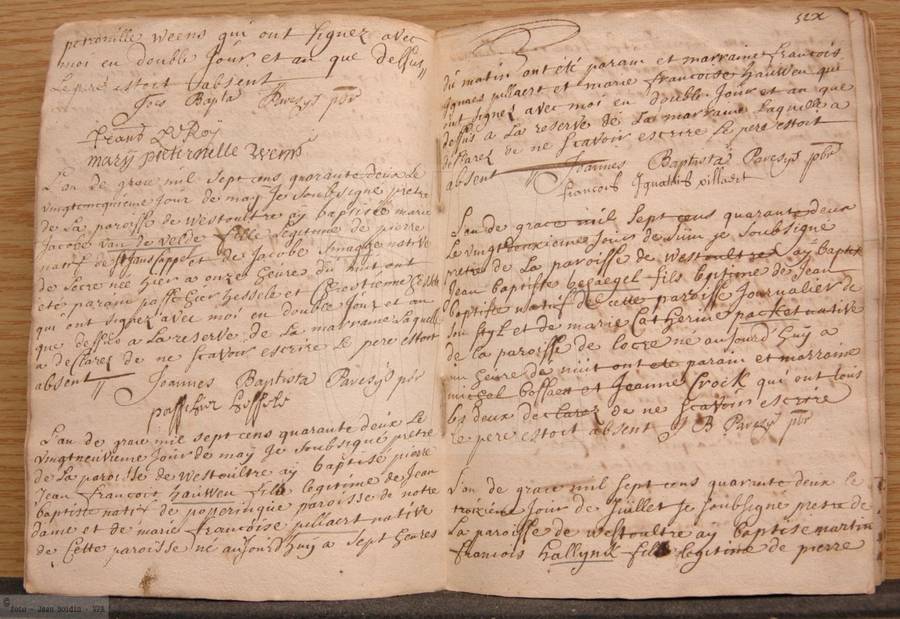 petronille weens qui ont signez avec
moi en double Jour et an que dessus
Le pere estoit absent
Joes Bapta Paresys pbr
Le Roy
mary pieternille wens
L'an de grace mil sept cens quarante deux Le
vingtcinquieme jour de may Je soubsigne pretre
de La paroisse de westoultre ay baptisé marie
Jacobe van de velde fille legitime de pierre
natif de et de Jacobe native
de Locre née hier a onze heure du nuit ont
eté parain hessele et
qui ont signez avec moi en double Jour et an
que dessus a La reserve de La marraine Laquelle
a declarez de ne scavoir escrire Le pere estoit
absent Joannes Baptista Paresys pbr
hessele
L'an de grace mil sept cens quarante deux Le
vingtneuvieme Jour de may Je soubsigné pretre
de La paroisse de westoultre ay baptisé pierre
Jean francois hauwen fils legitime de Jean
baptiste natif de poperinque paroisse de notre
dame et de marie francoise pillaert native
de Cette paroisse né aujourdhuy a sept heures
du matin ont eté parain et marraine francois
Ignaes pillaert et marie francoise hauwen qui
ont signez avec moi en double Jour et an que
dessus a La reserve de La marraine Laquelle a
declarez de ne scavoir escrire Le pere estoit
absent Joannes Baptista Paresys pbr
francois Ignatius pillaert
L'an de grace mil sept cens quarante deux
Le vingt deuxieme Jour de Juin je soubsigne
pretre de La paroisse de westoultre ay baptisé
Jean baptiste fils legitime de Jean
baptiste natif de Cette paroisse Journalier de
son styl et de marie Catherine packet native
de la paroisse de Locre né aujourdhuy a
un heure de nuit ont eté parain et marraine
michel bossaert et Jeanne Croik qui ont tous
les deux declarez de ne scavoir escrire
Le pere estoit absent J B Paresys pbr
L'an de grace mil sept cens quarante deux le
troizieme Jour de Juillet Je soubsigne pretre de
La paroisse de westoultre ay baptisé martin
francois hallynk fils legitime de pierre
© foto - Jean Soldin - VVF